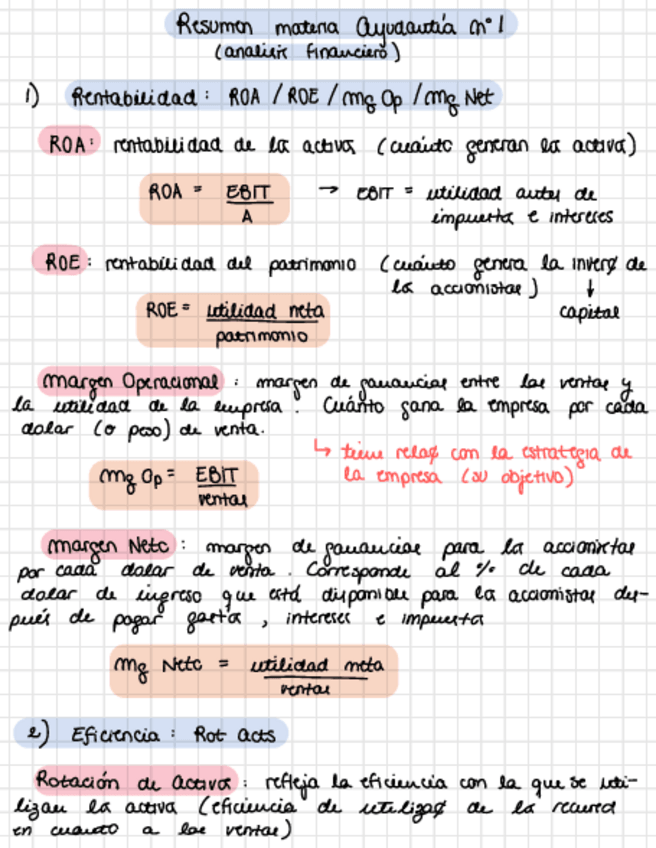 Resumen materia Ayudantía n°1
(analisis financiero)
1) Rentabilidad: ROA / ROE / Mg Op / Mg Net
ROA: rentabilidad de los activos (cuánto generan los activos)
ROA = EBIT / A → EBIT = utilidad antes de
impuestos e intereses
ROE: rentabilidad del patrimonio (cuánto genera la inverº de
los accionistas) ↓
capital
ROE = utilidad neta / patrimonio
Margen Operacional: margen de ganancias entre las ventas y
la utilidad de la empresa. Cuánto gana la empresa por cada
dolar (o peso) de venta.
↳ tiene relaº con la estrategia de
la empresa (su objetivo)
Mg Op = EBIT / ventas
Margen Neto: margen de ganancias para los accionistas
por cada dolar de venta. Corresponde al % de cada
dolar de ingreso que está disponible para los accionistas des-
pués de pagar gastos, intereses e impuestos
Mg Neto = utilidad neta / ventas
2) Eficiencia: Rot Acts
Rotación de Activos: refleja la eficiencia con la que se uti-
lizan los activos (eficiencia de utilizaº de los recursos
en cuanto a las ventas)